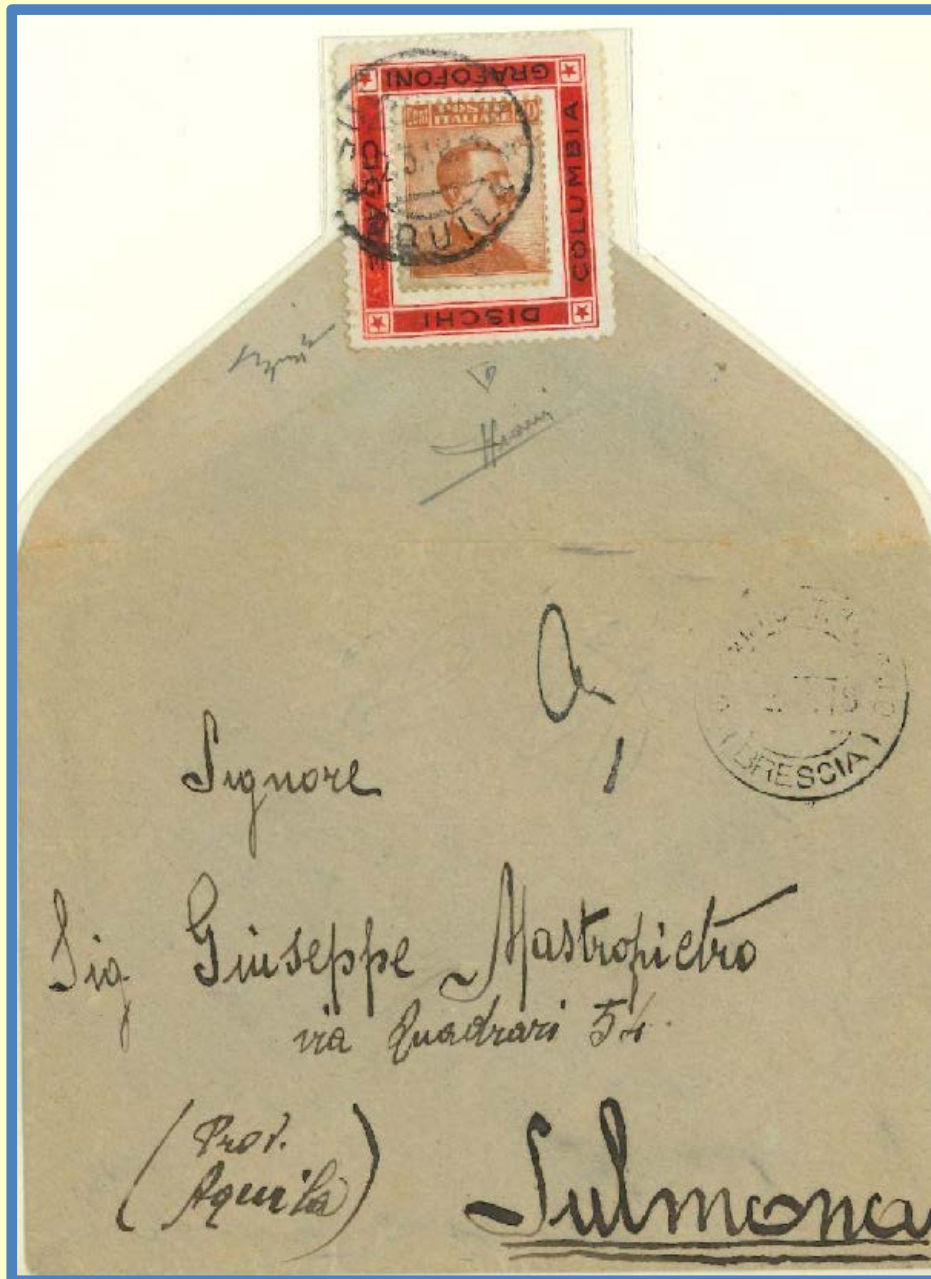 GRAFOFONI
COLUMBIA
DISCHI
Cent POSTE ITALIANE
A
Signore
Sig Giuseppe Mastropietro
via Quadrari 54
(Prov.
Aquila)
Sulmona
(BRESCIA)